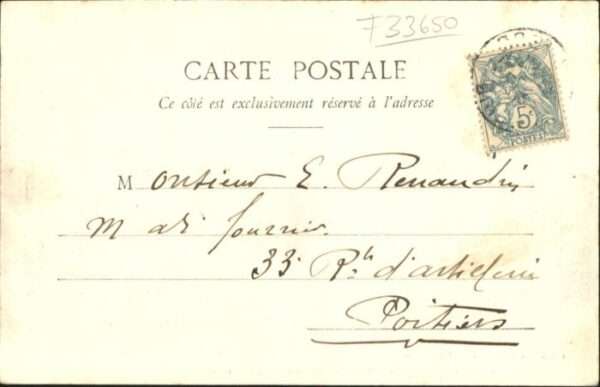 F33650
CARTE POSTALE
Ce côté est exclusivement réservé à l'adresse
5c
POSTES
Monsieur E. Renaudin
M
33 d'artillerie
Poitiers